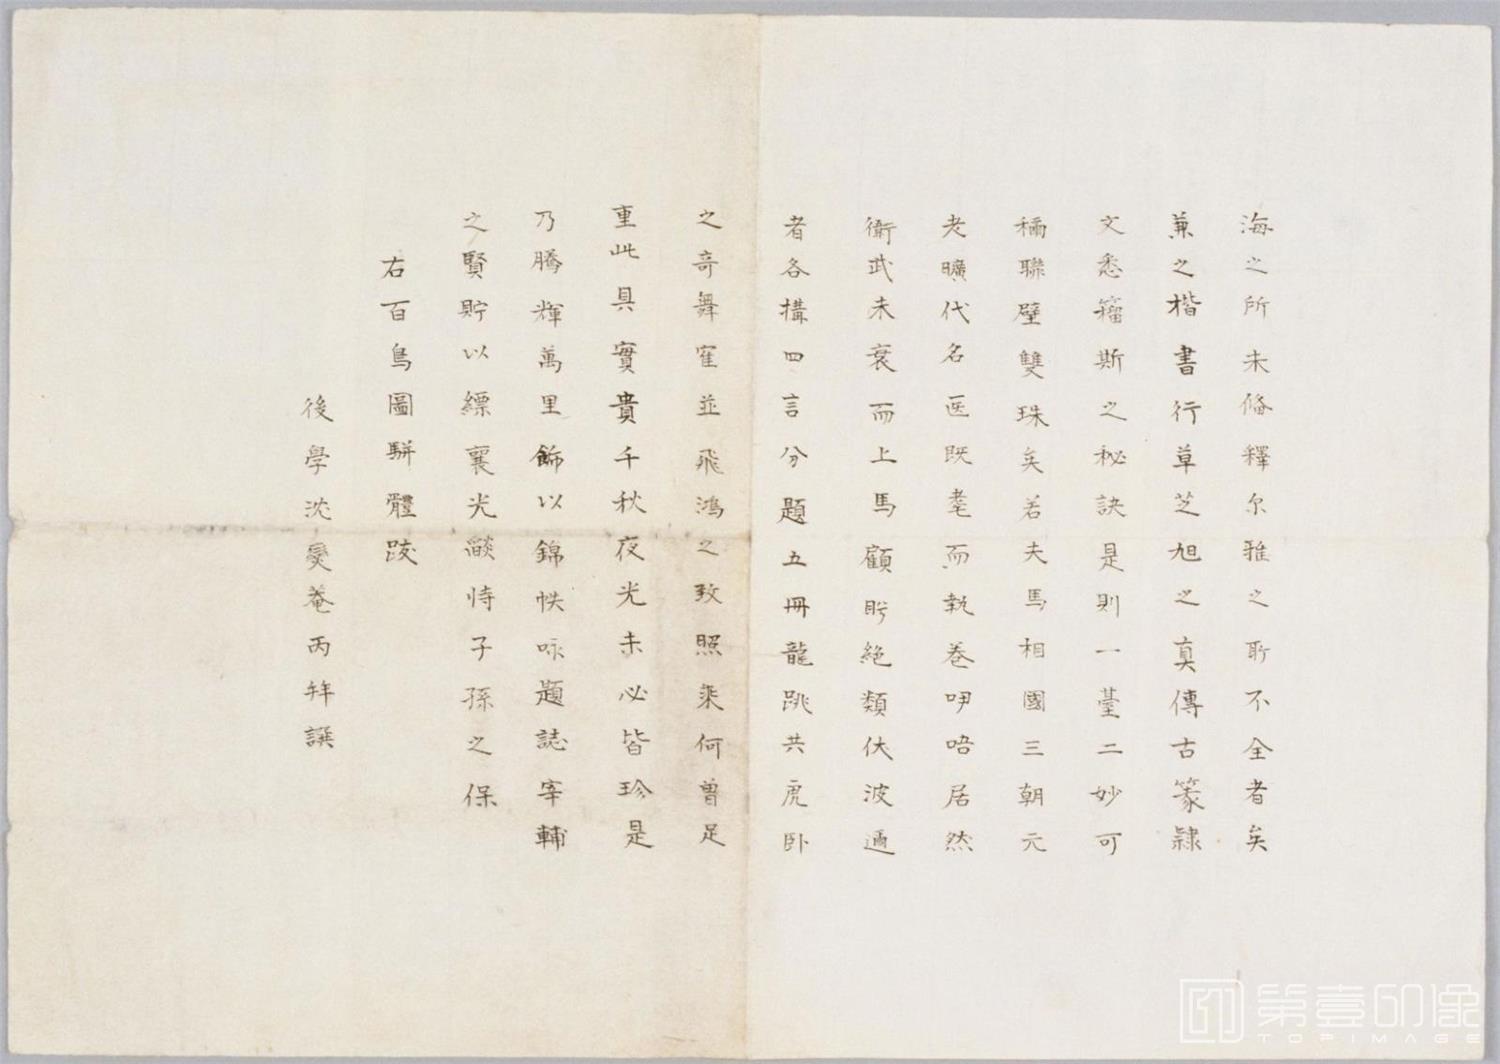 海之所未俻釋尔雅之所不全者矣
兼之楷書行草芝旭之真傳古篆隸
文悉籀斯之秘訣是則一臺二妙可
稱聯璧雙珠矣若夫馬相國三朝元
老曠代名医既耄而執卷吚唔居然
衛武未衰而上馬顧盻絶類伏波迺
者各構四言分題五冊龍跳共虎卧
之奇舞寉並飛鴻之致照乘何曽足
重此具實貴千秋夜光未必皆珍是
乃騰輝萬里飾以錦帙咏題誌宰輔
之賢貯以縹囊光燄恃子孫之保
右百鳥圖駢體跋
後學沈菴丙拜譔
第壹印像
TOPIMAGE